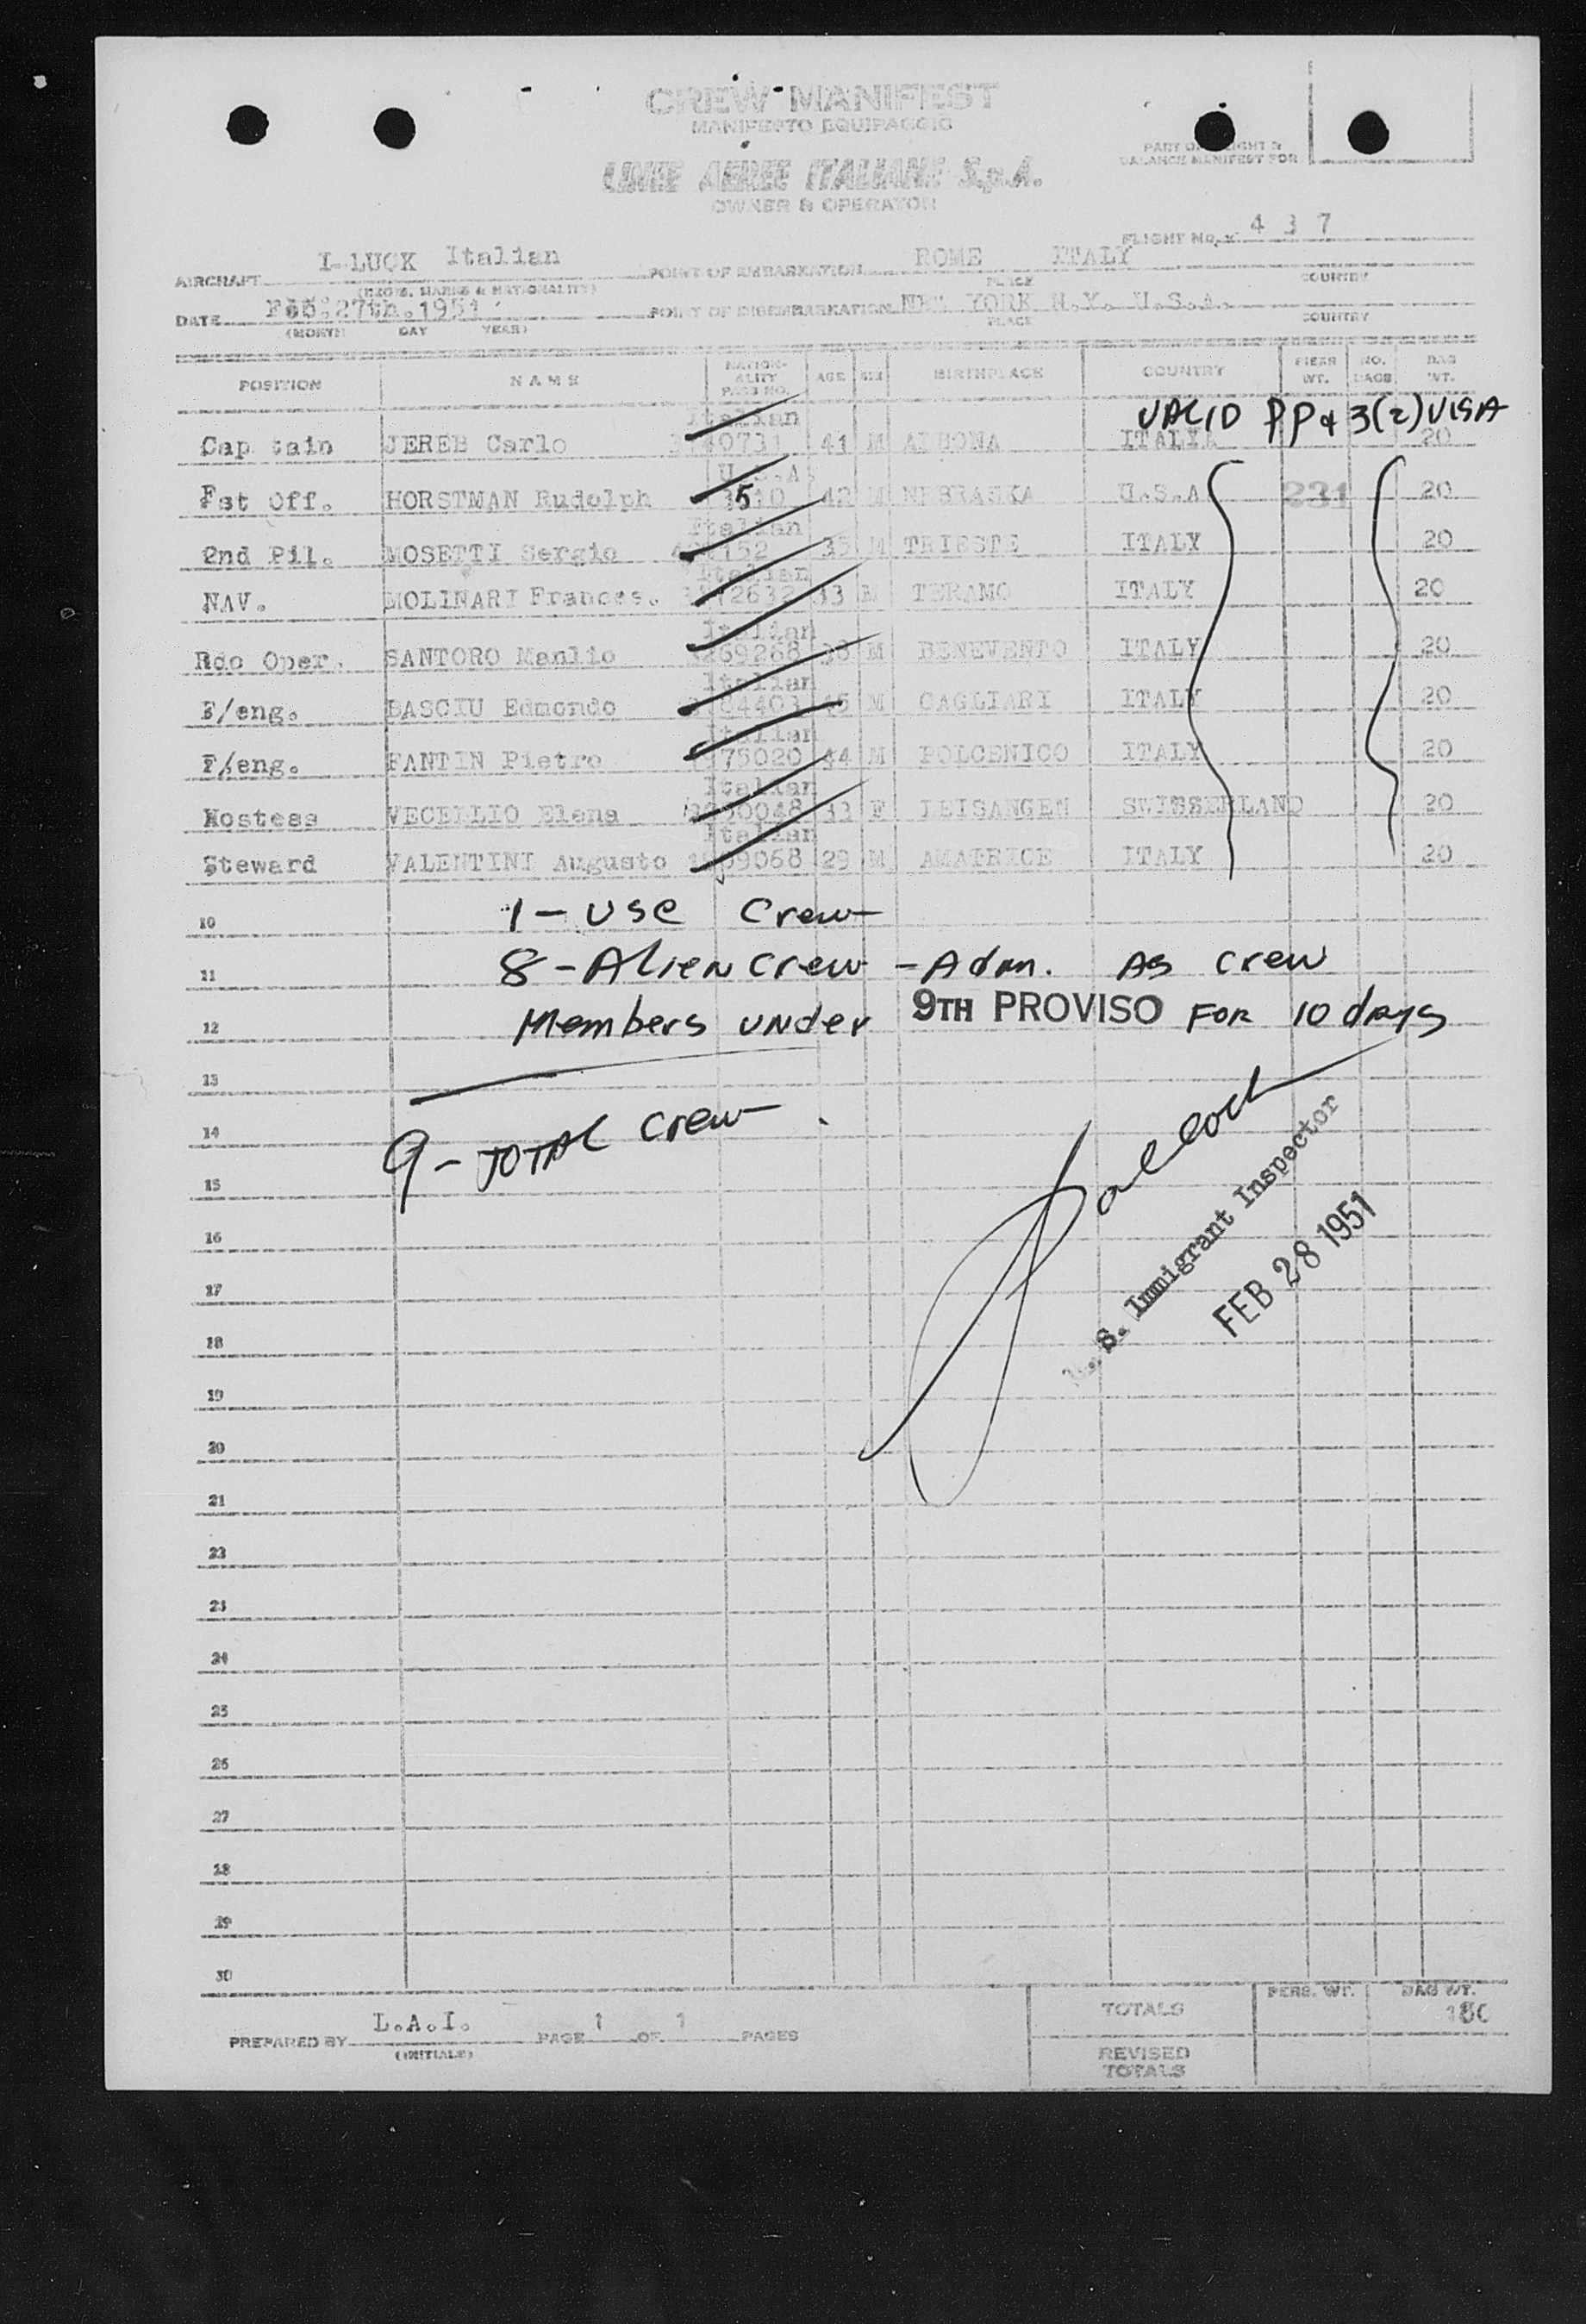 CREW MANIFEST
MANIFESTO EQUIPAGGIO
LINEE AEREE ITALIANE S.p.A.
OWNER & OPERATOR
PART OF WEIGHT &
BALANCE MANIFEST FOR
FLIGHT No. 4 3 7
AIRCRAFT I-LUCK Italian POINT OF EMBARKATION ROME ITALY
(REGIS. MARKS & NATIONALITY) PLACE COUNTRY
DATE Feb. 27th. 1951 POINT OF DISEMBARKATION NEW YORK N.Y. U.S.A.
(MONTH DAY YEAR) PLACE COUNTRY
POSITION NAME NATION-ALITY PASS NO. AGE SEX BIRTHPLACE COUNTRY PERS WT. NO. BAGS BAG WT.
VALID PP & 3(2) VISA
Italian
Cap tain JEREB Carlo 41 M ITALY 20
U.S.A.
Fst Off. HORSTMAN Rudolph 42 M NEBRASKA U.S.A 231 20
Italian
2nd Pil. MOSETTI Sergio 35 M TRIESTE ITALY 20
Italian
NAV. MOLINARI Frances. 33 M TERAMO ITALY 20
Italian
Rdo Oper. SANTORO Manlio 38 M BENEVENTO ITALY 20
Italian
F/eng. BASCIU Edmondo 45 M CAGLIARI ITALY 20
Italian
F/eng. FANTIN Pietro 44 M POLCENICO ITALY 20
Italian
Hostess VECELLIO Elena 33 F SWISSERLAND 20
Italian
Steward VALENTINI Augusto 29 M AMATRICE ITALY 20
10 1 - USC Crew
11 8 - Alien crew - Adm. as crew
12 Members under 9TH PROVISO for 10 days
13
14 9 - TOTAL crew
15
16
17
18
19
20
21
22
23
24
25
26
27
28
29
30
U.S. Immigrant Inspector
FEB 28 1951
PERS. WT. BAG WT.
TOTALS 180
PREPARED BY L.A.I. PAGE 1 OF 1 PAGES
(INITIALS)
REVISED
TOTALS